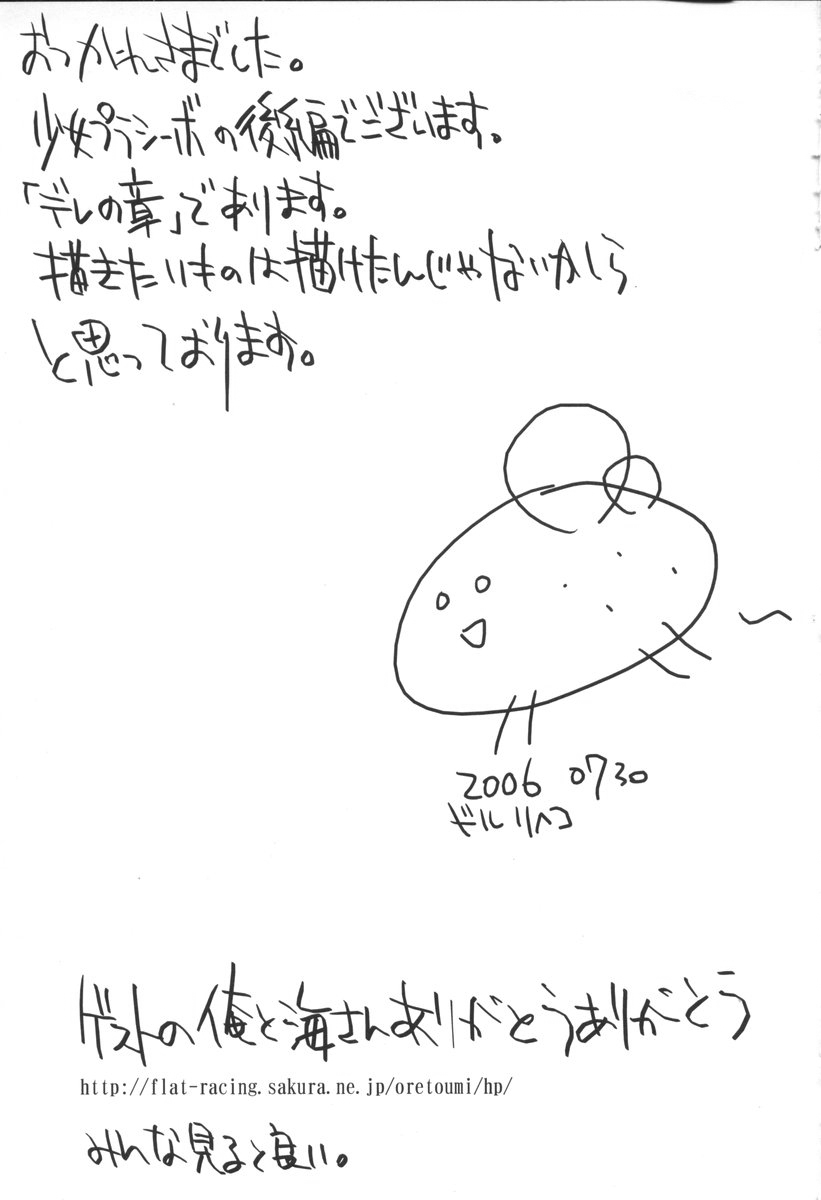 おつかれさまでした。
少女プラシーボの後編でございます。
「デレの章」であります。
描きたいものは描けたんじゃないかしら
と思っております。
2006 0730
ギルハコ
ゲストの俺と海さんありがとうありがとう
http://flat-racing.sakura.ne.jp/oretoumi/hp/
みんな見ると良い。